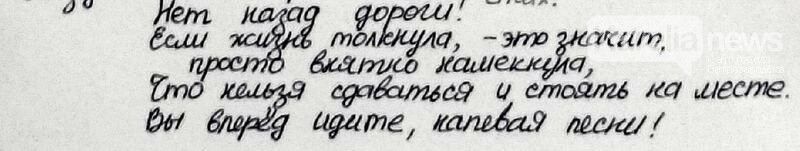 Нет назад дороги!
Если жизнь толкнула, - это значит,
просто внятно намекнула,
Что нельзя сдаваться и стоять на месте.
Вы вперёд идите, напевая песни!
news